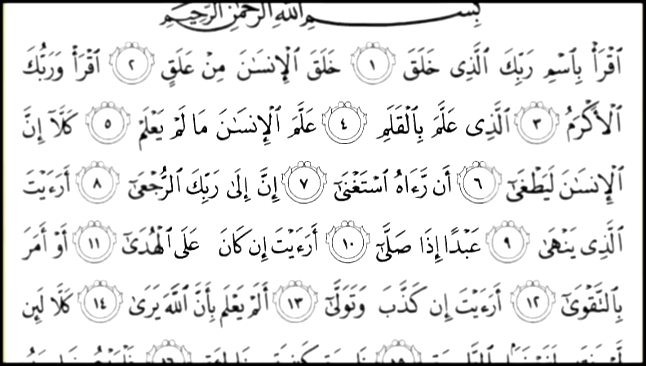 بِسْمِ ٱللَّهِ ٱلرَّحْمَٰنِ ٱلرَّحِيمِ
ٱقْرَأْ بِٱسْمِ رَبِّكَ ٱلَّذِى خَلَقَ ١ خَلَقَ ٱلْإِنسَٰنَ مِنْ عَلَقٍ ٢ ٱقْرَأْ وَرَبُّكَ
ٱلْأَكْرَمُ ٣ ٱلَّذِى عَلَّمَ بِٱلْقَلَمِ ٤ عَلَّمَ ٱلْإِنسَٰنَ مَا لَمْ يَعْلَمْ ٥ كَلَّآ إِنَّ
ٱلْإِنسَٰنَ لَيَطْغَىٰٓ ٦ أَن رَّءَاهُ ٱسْتَغْنَىٰٓ ٧ إِنَّ إِلَىٰ رَبِّكَ ٱلرُّجْعَىٰٓ ٨ أَرَءَيْتَ
ٱلَّذِى يَنْهَىٰ ٩ عَبْدًا إِذَا صَلَّىٰٓ ١٠ أَرَءَيْتَ إِن كَانَ عَلَى ٱلْهُدَىٰٓ ١١ أَوْ أَمَرَ
بِٱلتَّقْوَىٰٓ ١٢ أَرَءَيْتَ إِن كَذَّبَ وَتَوَلَّىٰٓ ١٣ أَلَمْ يَعْلَم بِأَنَّ ٱللَّهَ يَرَىٰ ١٤ كَلَّا لَئِن